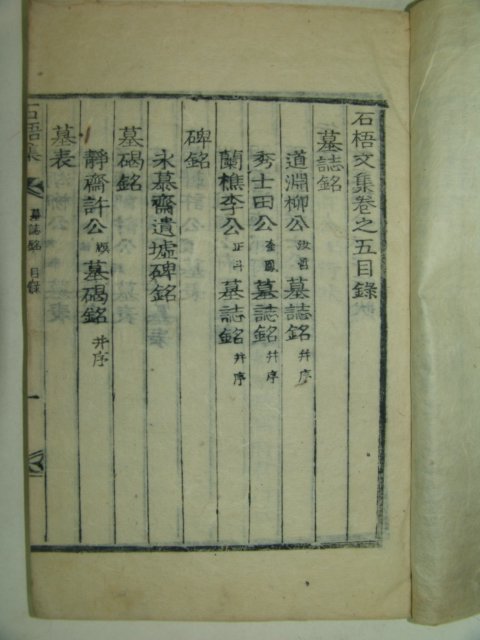 石梧文集卷之五目錄
墓誌銘
道淵柳公汶晉墓誌銘幷序
秀士田公奎鳳墓誌銘幷序
蘭樵李公正斗墓誌銘幷序
碑銘
永慕齋遺墟碑銘
墓碣銘
靜齋許公墓碣銘幷序
墓表
石梧集
墓誌銘 目錄
一